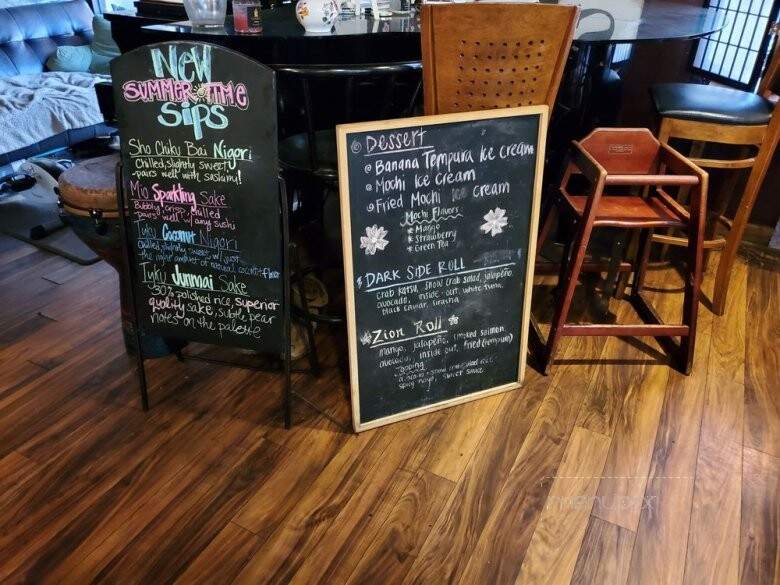 New
SUMMER TIME
SIPS
Sho Chiku Bai Nigori
Chilled, slightly sweet,
pairs well with sashimi!
Mio Sparkling Sake
Bubbly, crisp, chilled
pairs well w/ any sushi
Tyku Coconut Nigori
Chilled, slightly sweet w/ just
the right amount of natural coconut flavor
Tyku Junmai Sake
30% polished rice, superior
quality sake, subtle pear
notes on the palette
DESSERT
Banana Tempura Ice Cream
Mochi Ice Cream
Fried Mochi Ice Cream
Mochi Flavors
* Mango
* Strawberry
* Green Tea
DARK SIDE ROLL
crab katsu, snow crab salad, jalapeño
avocado, inside-out, white tuna,
black caviar, sriracha
Zion Roll
mango, jalapeño, smoked salmon,
avocado, inside out, fried (tempura)
topping
spicy mayo, sweet sauce
menupix